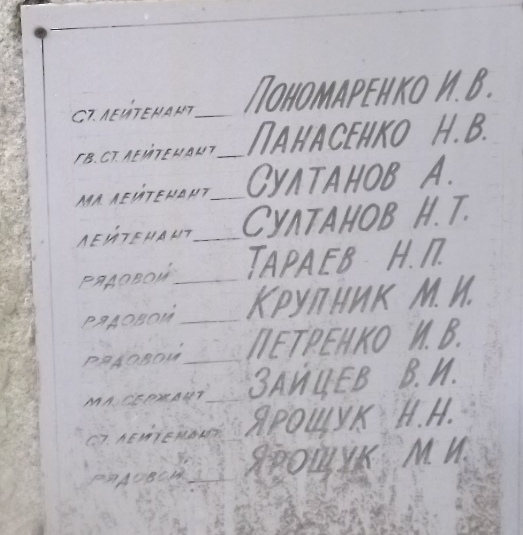 СТ. ЛЕЙТЕНАНТ ПОНОМАРЕНКО И. В.
ГВ. СТ. ЛЕЙТЕНАНТ ПАНАСЕНКО Н. В.
МЛ. ЛЕЙТЕНАНТ СУЛТАНОВ А.
ЛЕЙТЕНАНТ СУЛТАНОВ Н. Т.
РЯДОВОЙ ТАРАЕВ Н. П.
РЯДОВОЙ КРУПНИК М. И.
РЯДОВОЙ ПЕТРЕНКО И. В.
МЛ. СЕРЖАНТ ЗАЙЦЕВ В. И.
СТ. ЛЕЙТЕНАНТ ЯРОЩУК Н. Н.
РЯДОВОЙ ЯРОЩУК М. И.